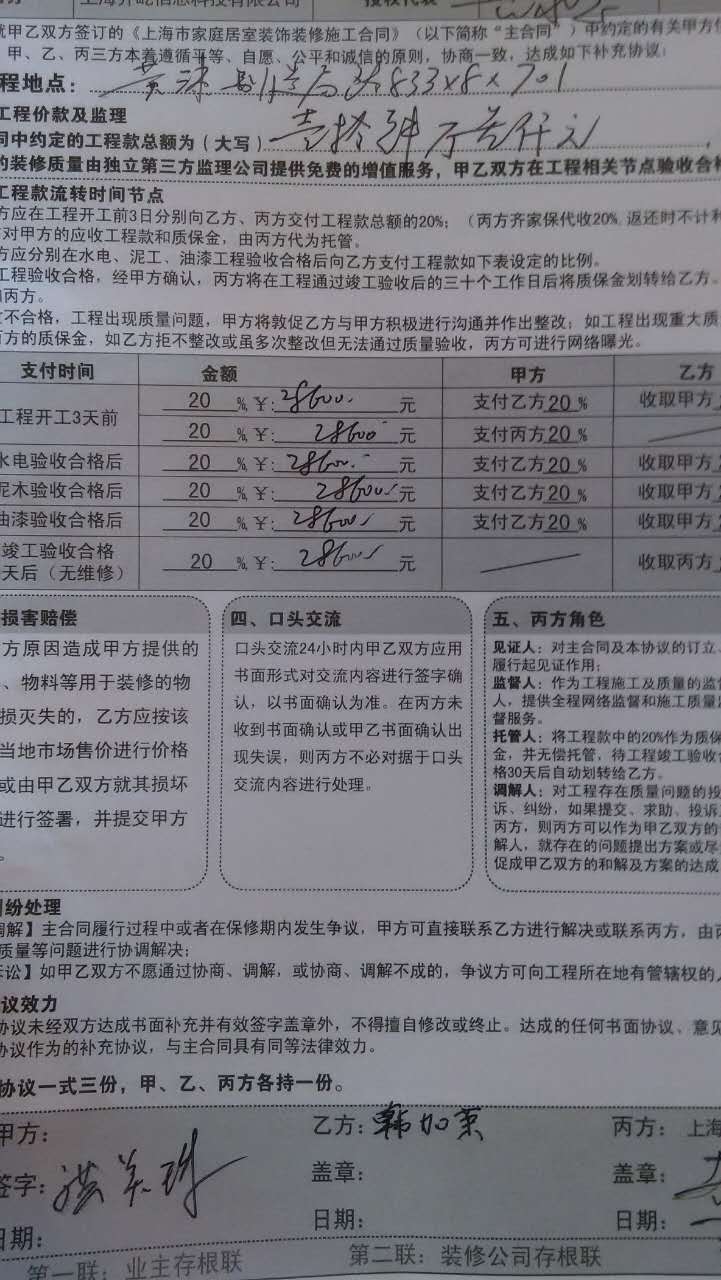 上海齐屹信息科技有限公司 授权代表
就甲乙双方签订的《上海市家庭居室装饰装修施工合同》（以下简称“主合同”）中约定的有关甲方
、甲、乙、丙三方本着遵循平等、自愿、公平和诚信的原则，协商一致，达成如下补充协议：
程地点： 833 701
工程价款及监理
同中约定的工程款总额为（大写）
的装修质量由独立第三方监理公司提供免费的增值服务，甲乙双方在工程相关节点验收合
工程款流转时间节点
方应在工程开工前3日分别向乙方、丙方交付工程款总额的20%；（丙方齐家保代收20%，返还时不计
对甲方的应收工程款和质保金，由丙方代为托管。
方应分别在水电、泥工、油漆工程验收合格后向乙方支付工程款如下表设定的比例。
工程验收合格，经甲方确认，丙方将在工程通过竣工验收后的三十个工作日后将质保金划转给乙方。
丙方。
不合格，工程出现质量问题，甲方将敦促乙方与甲方积极进行沟通并作出整改；如工程出现重大质
方的质保金，如乙方拒不整改或虽多次整改但无法通过质量验收，丙方可进行网络曝光。
支付时间 金额 甲方 乙方
工程开工3天前 20 %,￥: 28600 元 支付乙方20 % 收取甲方
20 %,￥: 28600 元 支付丙方20 %
水电验收合格后 20 %,￥: 28600 元 支付乙方20 % 收取甲方
泥木验收合格后 20 %,￥: 28600 元 支付乙方20 % 收取甲方
油漆验收合格后 20 %,￥: 28600 元 支付乙方20 % 收取甲方
竣工验收合格
天后（无维修） 20 %,￥: 28600 元 收取丙方
损害赔偿
方原因造成甲方提供的
、物料等用于装修的物
损灭失的，乙方应按该
当地市场售价进行价格
或由甲乙双方就其损坏
进行签署，并提交甲方
。
四、口头交流
口头交流24小时内甲乙双方应用
书面形式对交流内容进行签字确
认，以书面确认为准。在丙方未
收到书面确认或甲乙书面确认出
现失误，则丙方不必对据于口头
交流内容进行处理。
五、丙方角色
见证人：对主合同及本协议的订立、
履行起见证作用；
监督人：作为工程施工及质量的监
人，提供全程网络监督和施工质量
督服务。
托管人：将工程款中的20%作为质保
金，并无偿托管，待工程竣工验收
格30天后自动划转给乙方。
调解人：对工程存在质量问题的投
诉、纠纷，如果提交、求助、投诉
丙方，则丙方可以作为甲乙双方的
解人，就存在的问题提出方案或尽
促成甲乙双方的和解及方案的达成
纠纷处理
调解】主合同履行过程中或者在保修期内发生争议，甲方可直接联系乙方进行解决或联系丙方，由
质量等问题进行协调解决；
诉讼】如甲乙双方不愿通过协商、调解，或协商、调解不成的，争议方可向工程所在地有管辖权的
议效力
协议未经双方达成书面补充并有效签字盖章外，不得擅自修改或终止。达成的任何书面协议、意见
协议作为的补充协议，与主合同具有同等法律效力。
协议一式三份，甲、乙、丙方各持一份。
甲方： 乙方：韩加荣 丙方：上海
签字： 盖章： 盖章：
日期： 日期： 日期：
第一联：业主存根联 第二联：装修公司存根联